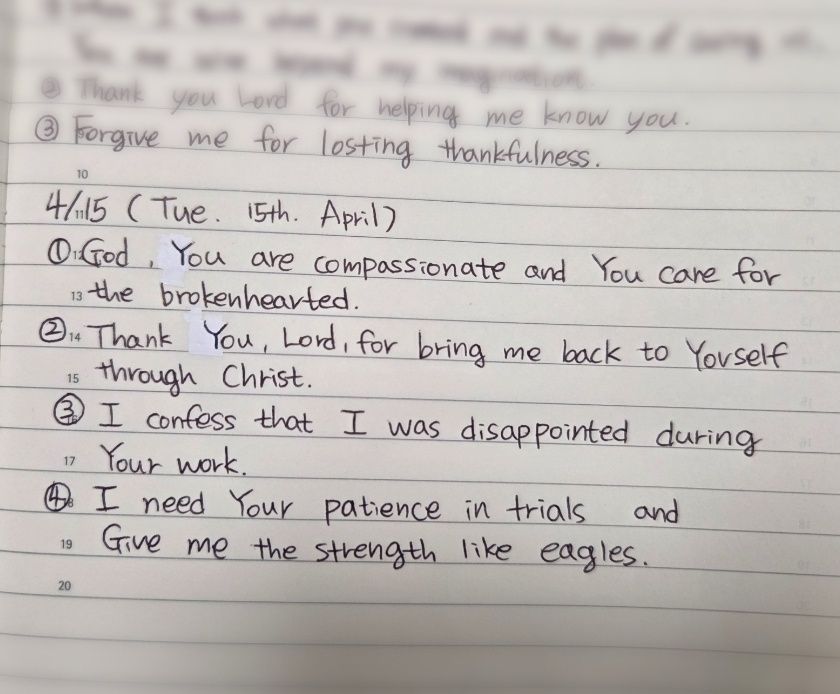 ② Thank you Lord for helping me know you.
③ Forgive me for losting thankfulness.
10
4/15 (Tue. 15th. April)
11
① God, You are compassionate and You care for
12
13 the brokenhearted.
② 14 Thank You, Lord, for bring me back to Yourself
15 through Christ.
③ I confess that I was disappointed during
17 Your work.
④ I need Your patience in trials and
19 Give me the strength like eagles.
20